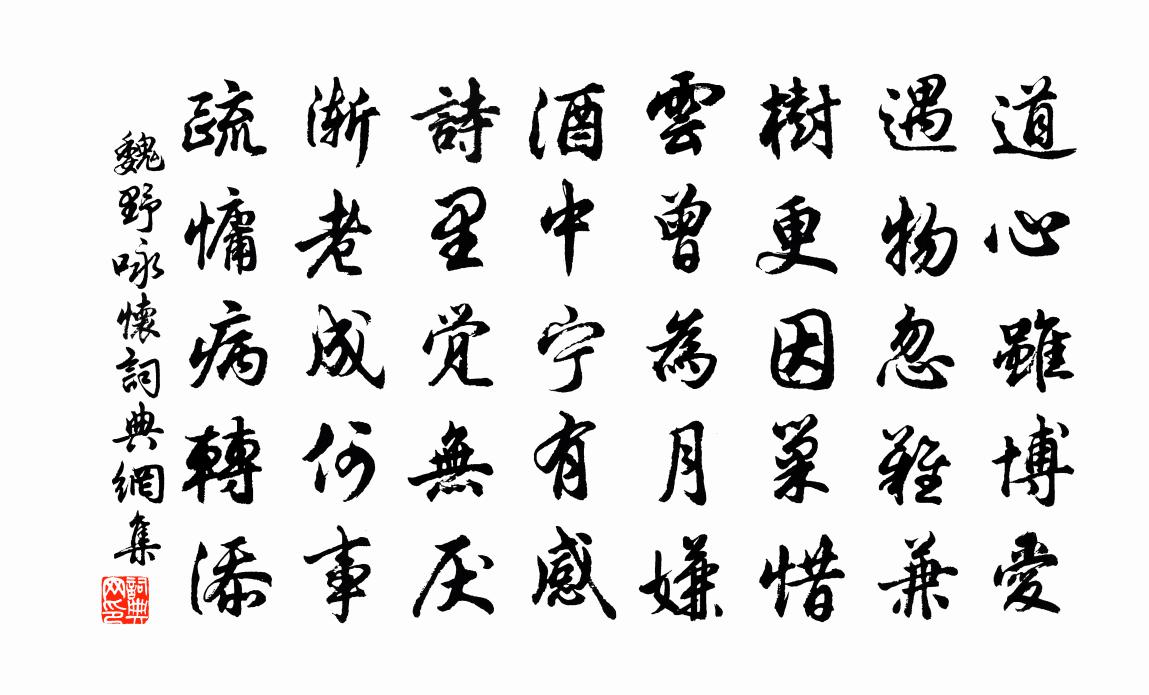 道心雖博愛
遇物忽難兼
樹更因巢惜
雲曾為月嫌
酒中宁有感
詩里觉無厌
渐老成何事
疏慵病轉添
魏野咏懷詞典網集
詞典网印